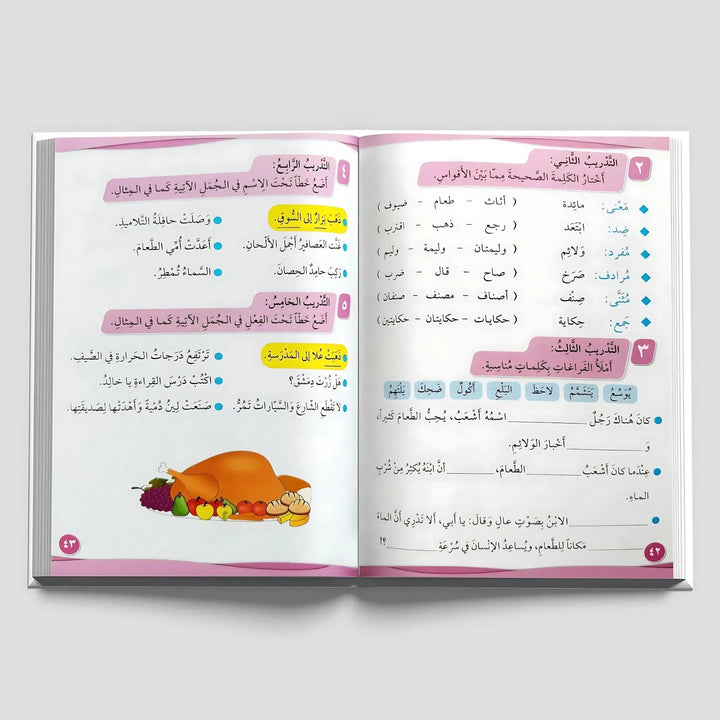 ٢
التَّدْريبُ الثَّاني:
أَخْتارُ الكَلِمَةَ الصَّحيحَةَ مِمّا بَيْنَ الأَقْواسِ.
مَعْنى: مائِدة ( أثاث – طعام – ضيوف )
ضِد: ابْتَعَد ( رجع – ذهب – اقترب )
مُفرد: وَلائِم ( وليمتان – وليمة – وليم )
مُرادف: صَرَخَ ( صاح – قال – ضرب )
مُثَنَّى: صِنْف ( أصناف – مصنف – صنفان )
جَمع: حِكاية ( حكايات – حكايتان – حكايتين )
٣
التَّدْريبُ الثَّالِثُ:
أَمْلَأُ الفَراغاتِ بِكَلِماتٍ مُناسِبَةٍ.
يُوَسِّعُ يَتَشَمَّمُ لاحَظَ البَلْعِ أَكُولٌ ضَحِكَ يَلْتَهِمُ
كانَ هُناكَ رَجُلٌ ________ اسْمُهُ أَشْعَبُ، يُحِبُّ الطَّعامَ كَثيراً،
وَ ________ أَخْبارَ الوَلائِمِ.
عِنْدَما كانَ أَشْعَبُ ________ الطَّعامَ، ________ أنَّ ابْنَهُ يُكْثِرُ مِنْ شُرْبِ
الماءِ.
________ الابْنُ بِصَوْتٍ عالٍ وَقالَ: يا أَبي، أَلا تَدْري أَنَّ الماءَ
________ مَكاناً لِلطَّعامِ، ويُساعِدُ الإنْسانَ في سُرْعَةِ ________ ؟!
٤٢
٤
التَّدْريبُ الرَّابِعُ:
أَضَعُ خَطّاً تَحْتَ الاِسْمِ في الـجُمَلِ الآتِيَةِ كَما في الـمِثالِ.
ذَهَبَ نِزارٌ إلى السُّوقِ.
وَصَلَتْ حافِلَةُ التَّلاميذِ.
غَنَّت العَصافيرُ أَجْمَلَ الأَلْحانِ.
أَعَدَّتْ أُمِّي الطَّعامَ.
رَكِبَ حامِدٌ الحِصانَ.
السَّماءُ تُمْطِرُ.
٥
التَّدْريبُ الخامِسُ:
أَضَعُ خَطّاً تَحْتَ الفِعْلِ في الـجُمَلِ الآتِيَةِ كَما في الـمِثالِ.
ذَهَبَتْ عُلا إلى المَدْرَسةِ.
تَرْتَفِعُ دَرَجاتُ الحَرارةِ في الصَّيْفِ.
هَلْ زُرْتَ دِمَشْقَ؟
اكْتُبْ دَرْسَ القِراءةِ يا خالِدُ.
لا تَقْطَعِ الشَّارِعَ وَالسَّيّاراتُ تَمُرُّ.
صَنَعَتْ لِينُ دُمْيَةً وَأَهْدَتْها لِصَديقَتِها.
٤٣